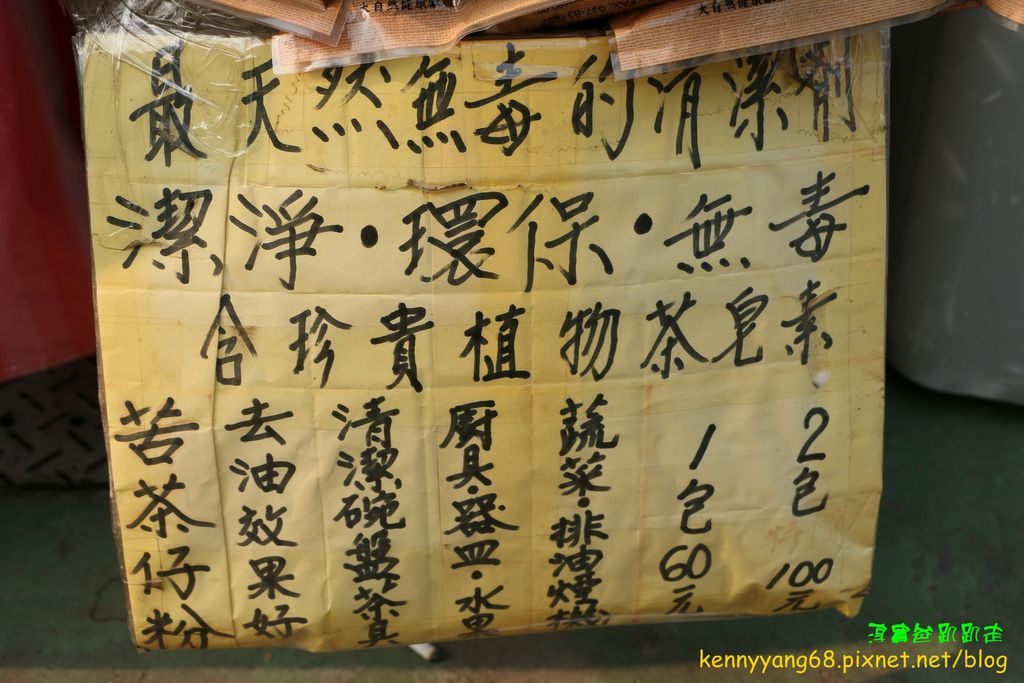 大自然健康
大自然健康
最天然無毒的清潔劑
潔淨·環保·無毒
含珍貴植物茶皂素
苦茶仔粉
去油效果好
清潔碗盤、茶具
廚具·器皿·水果
蔬菜·排油煙機
1包60元
2包100元
趴趴走
kennyyang68.pixnet.net/blog